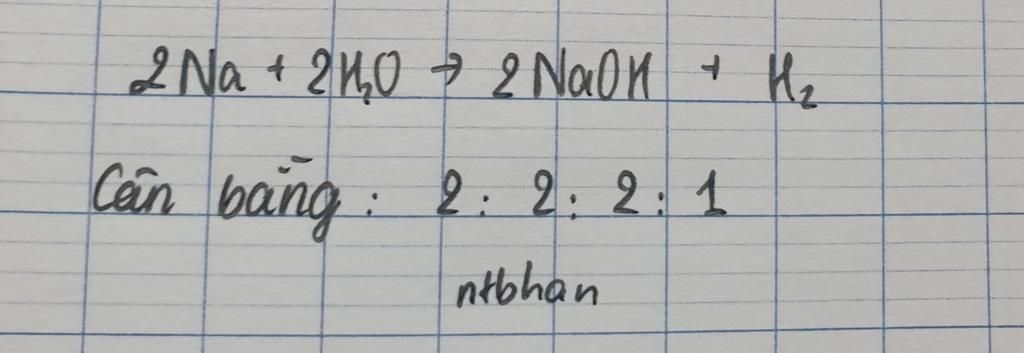 2Na + 2H₂O → 2NaOH + H₂
Cân bằng : 2 : 2 : 2 : 1
ntbhan